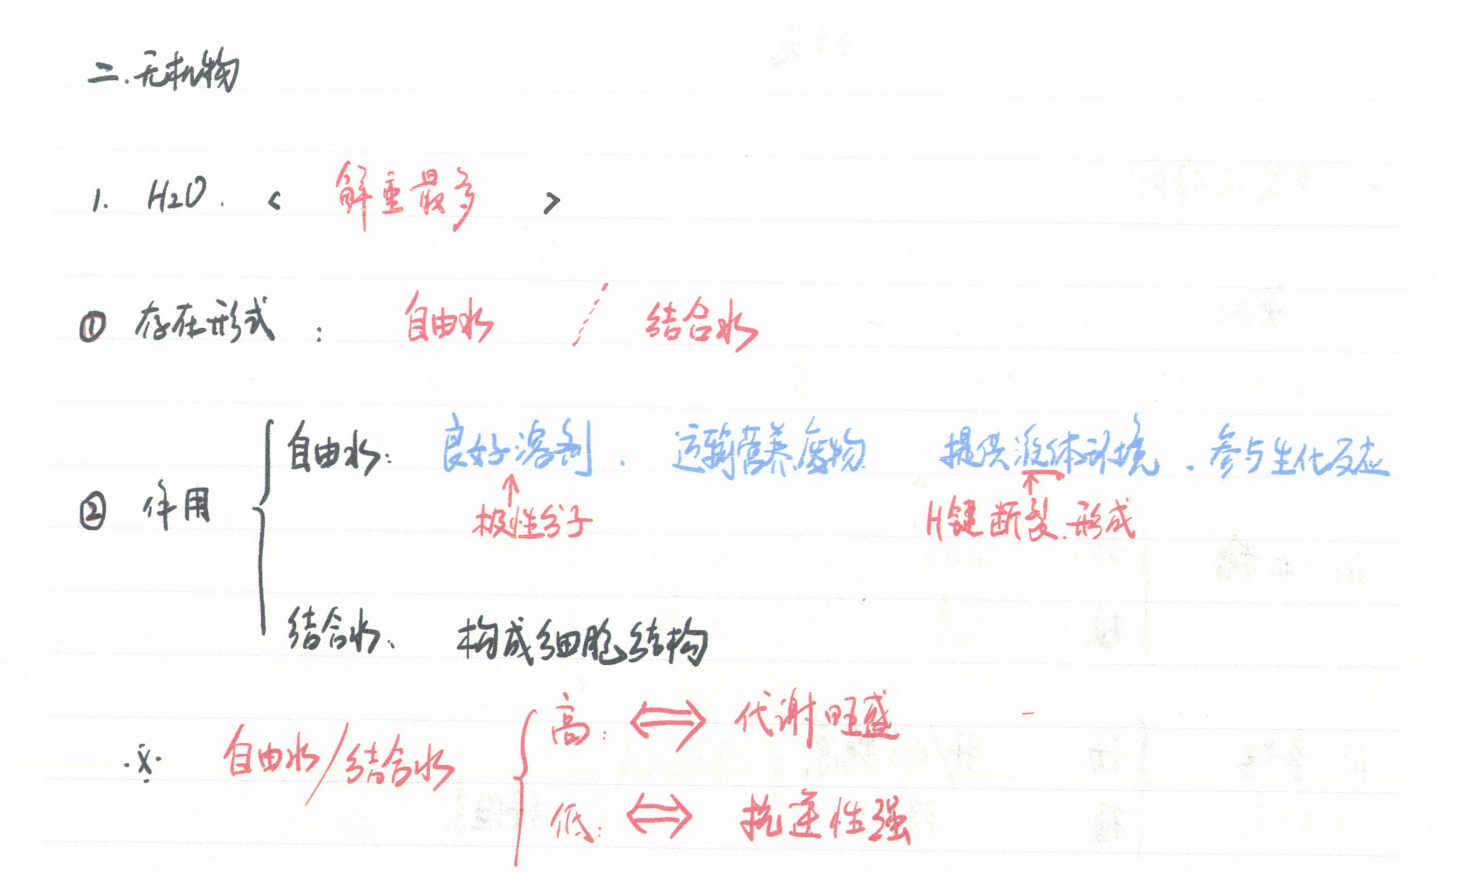 二.无机物
1. H2O. < 鲜重最多 >
① 存在形式: 自由水 / 结合水
② 作用
自由水: 良好溶剂. 运输营养废物 提供液体环境. 参与生化反应
↑极性分子 ↑H键断裂.形成
结合水: 构成细胞结构
※ 自由水/结合水
高: ⇔ 代谢旺盛
低: ⇔ 抗逆性强